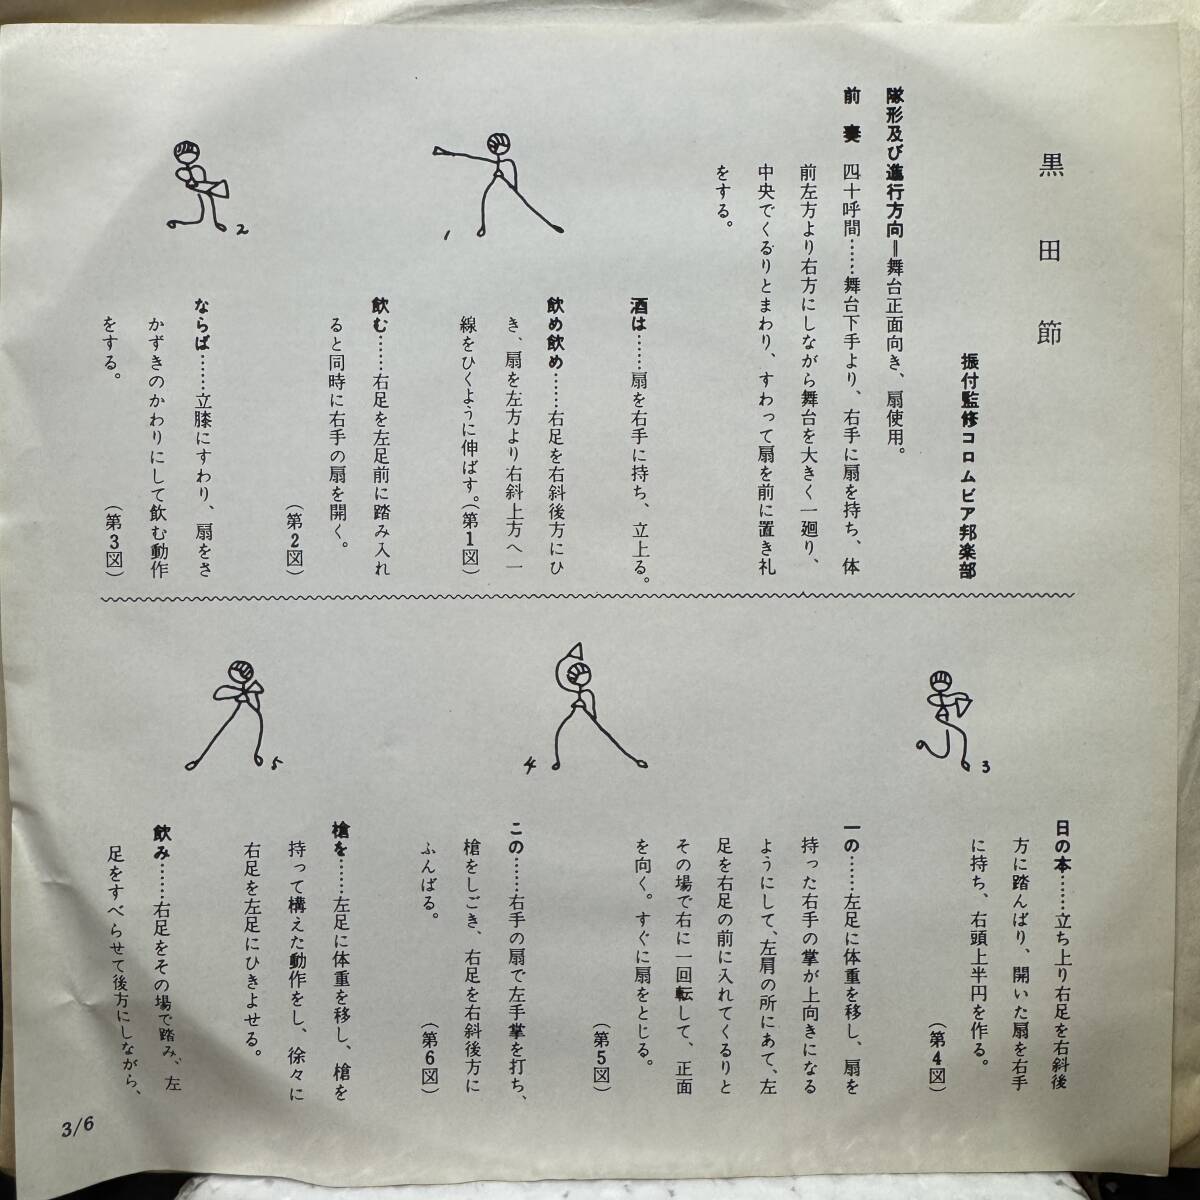 黒田節
振付監修コロムビア邦楽部
隊形及び進行方向＝舞台正面向き、扇使用。
前奏 四十呼間……舞台下手より、右手に扇を持ち、体
前左方より右方にしながら舞台を大きく一廻り、
中央でくるりとまわり、すわって扇を前に置き礼
をする。
酒は……扇を右手に持ち、立上る。
飲め飲め……右足を右斜後方にひ
き、扇を左方より右斜上方へ一
線をひくように伸ばす。(第1図)
飲む……右足を左足前に踏み入れ
ると同時に右手の扇を開く。
(第2図)
ならば……立膝にすわり、扇をさ
かずきのかわりにして飲む動作
をする。
(第3図)
1
2
3
4
5
日の本……立ち上り右足を右斜後
方に踏んばり、開いた扇を右手
に持ち、右頭上半円を作る。
(第4図)
一の……左足に体重を移し、扇を
持った右手の掌が上向きになる
ようにして、左肩の所にあて、左
足を右足の前に入れてくるりと
その場で右に一回転して、正面
を向く。すぐに扇をとじる。
(第5図)
この……右手の扇で左手掌を打ち、
槍をしごき、右足を右斜後方に
ふんばる。
(第6図)
槍を……左足に体重を移し、槍を
持って構えた動作をし、徐々に
右足を左足にひきよせる。
飲み……右足をその場で踏み、左
足をすべらせて後方にしながら、
3/6